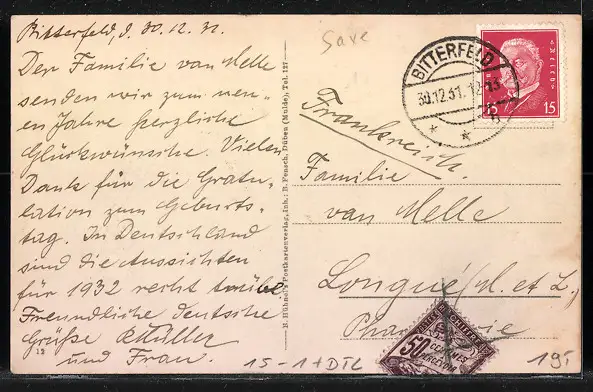 Bitterfeld, d. 30.12.31.
Der Familie van Melle
senden wir zum neu-
en Jahre herzliche
Glückwünsche. Vielen
Dank für die Gratu-
lation zum Geburts-
tag. In Deutschland
sind die Aussichten
für 1932 recht trübe.
Freundliche deutsche
Grüße Müller
und Frau.
12
R. Hübner's Postkartenverlag, Inh.: B. Fensch, Düben (Mulde), Tel. 127
Save
BITTERFELD
30.12.31.12-13
15 15
Frankreich.
Familie
van Melle
Longué/M. et L.
Pharmacie
50
CENTIMES
15-1+DTL